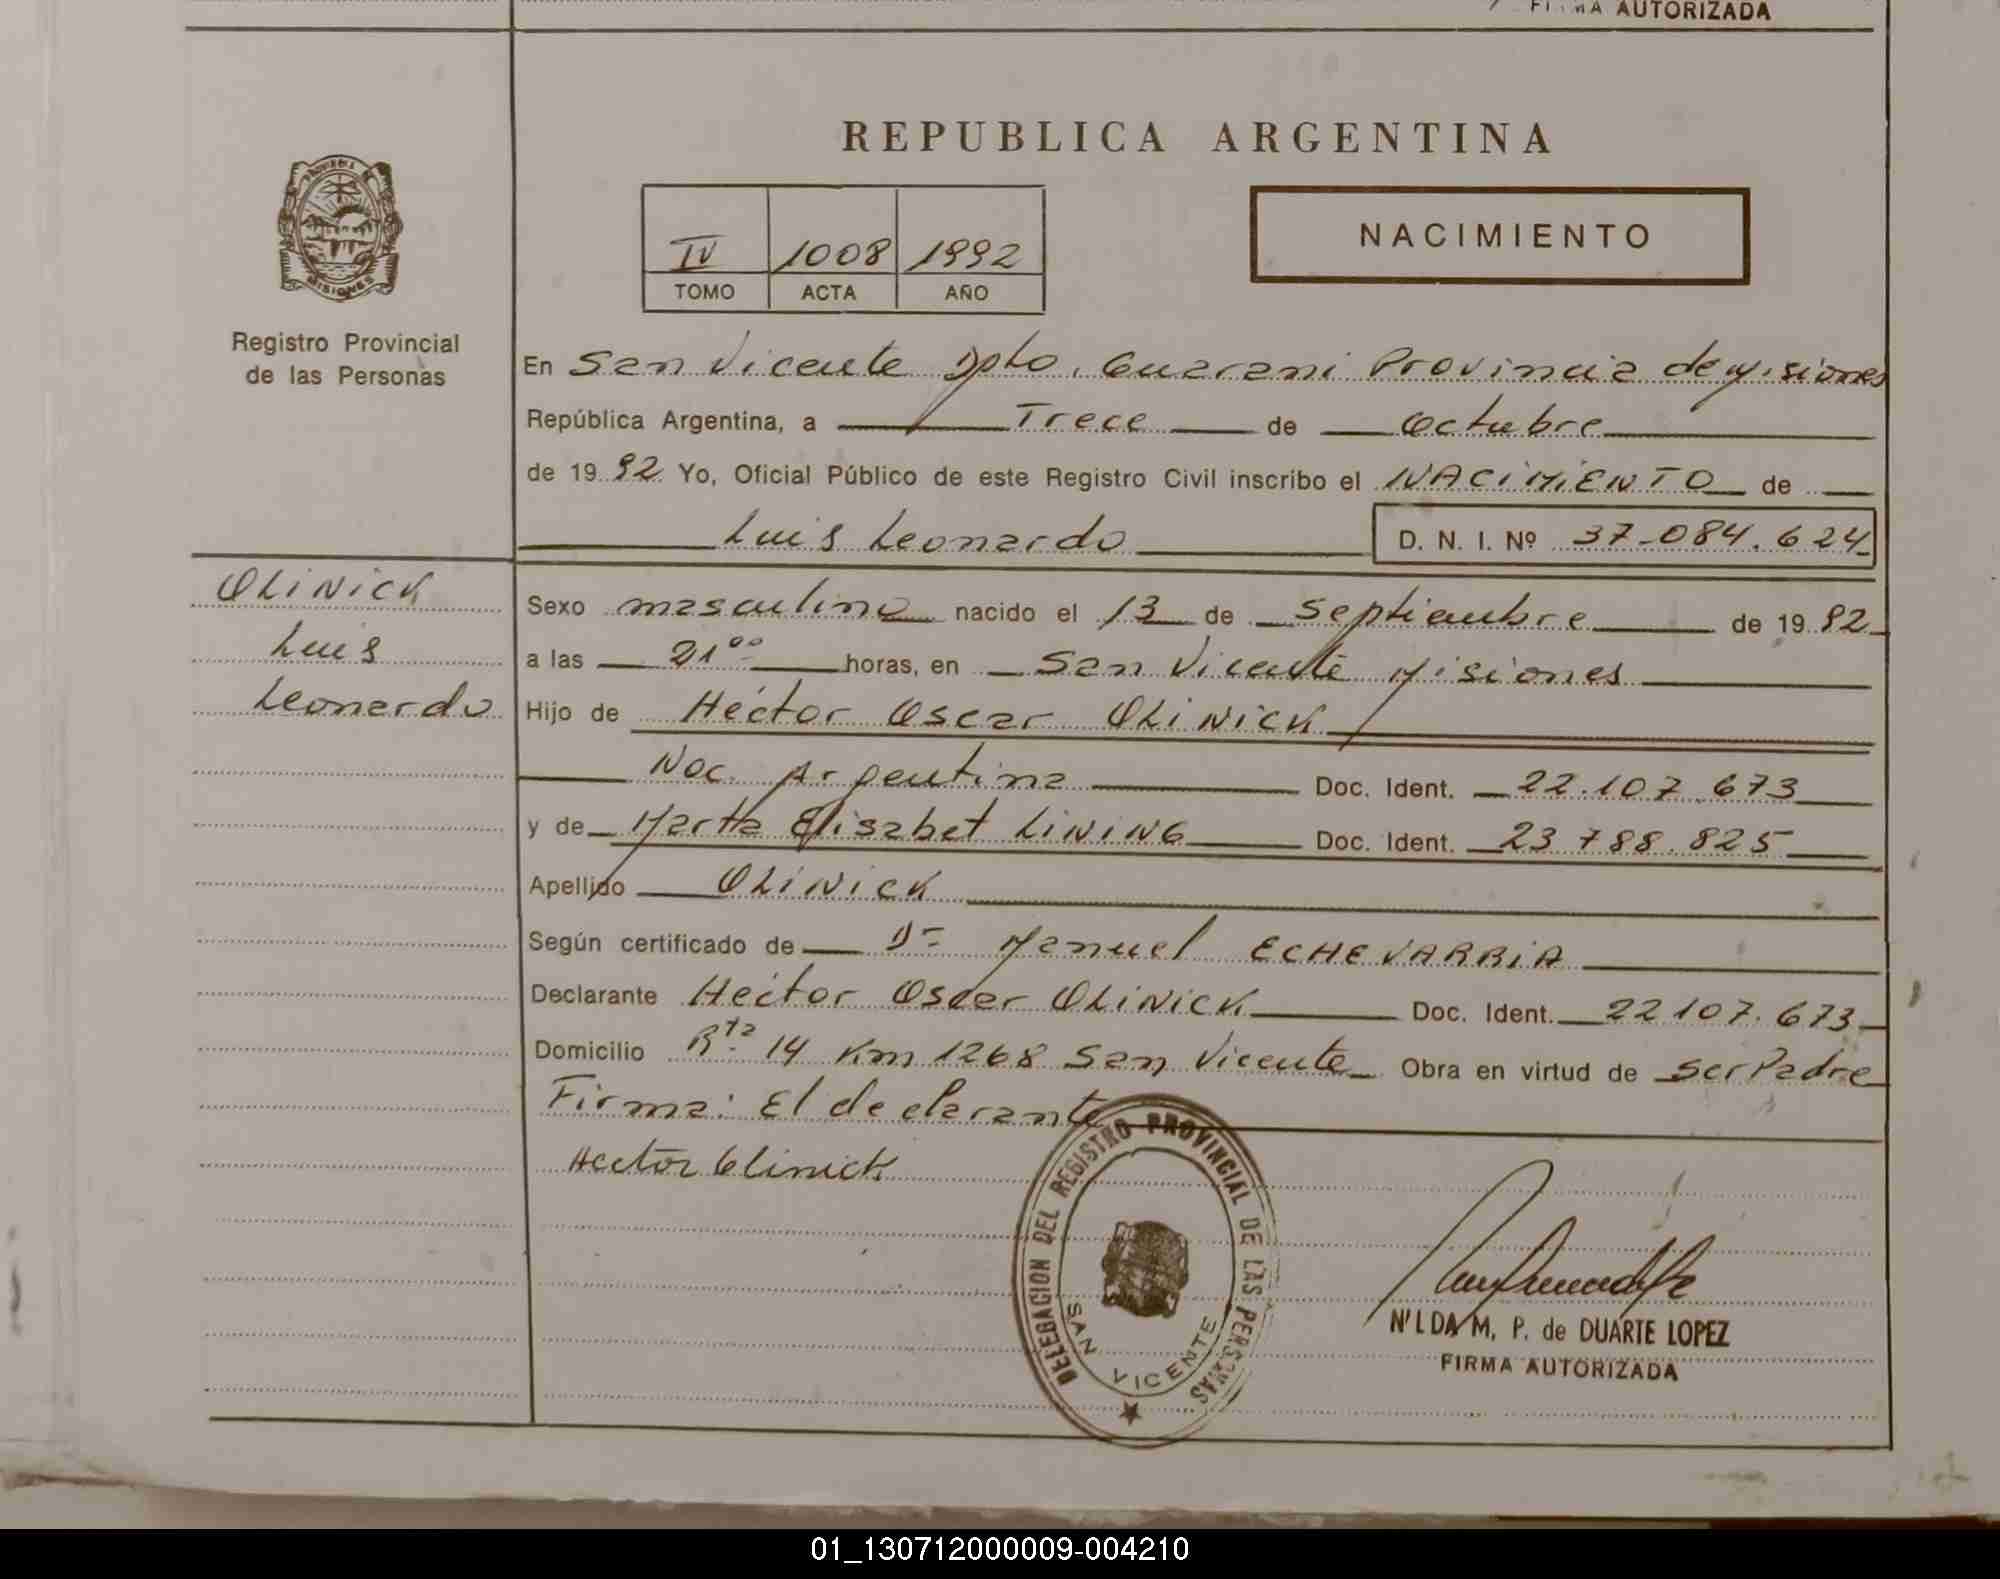 FIRMA AUTORIZADA
REPUBLICA ARGENTINA
PROVINCIA DE MISIONES
IV 1008 1992
TOMO ACTA AÑO
NACIMIENTO
Registro Provincial
de las Personas
En San Vicente Dpto. Guarani Provincia de Misiones
República Argentina, a Trece de Octubre
de 1992 Yo, Oficial Público de este Registro Civil inscribo el NACIMIENTO de
Luis Leonardo D. N. I. Nº 37.084.624
OLINICK
Luis
Leonardo
Sexo masculino nacido el 13 de Septiembre de 1992
a las 21⁰⁰ horas, en San Vicente Misiones
Hijo de Héctor Oscar OLINICK
Nac. Argentina Doc. Ident. 22.107.673
y de Marta Elisabet LINING Doc. Ident. 23 788.825
Apellido OLINICK
Según certificado de Dr Manuel ECHEVARRIA
Declarante Héctor Oscar OLINICK Doc. Ident. 22 107.673
Domicilio Rta 14 Km 1268 San Vicente Obra en virtud de ser Padre
Firma: El declarante
Hector Olinick
DELEGACION DEL REGISTRO PROVINCIAL DE LAS PERSONAS
SAN VICENTE
N'LDA M. P. de DUARTE LOPEZ
FIRMA AUTORIZADA
01_130712000009-004210